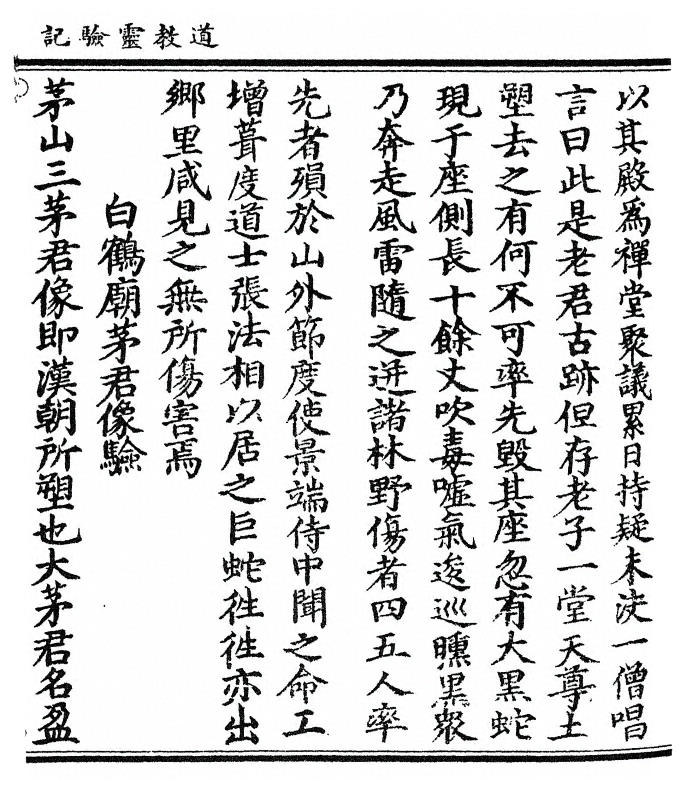 道教靈驗記
以其殿爲禪堂聚議累日持疑未決一僧唱
言曰此是老君古跡但存老子一堂天尊土
塑去之有何不可率先毀其座忽有大黑蛇
現于座側長十餘丈吹毒噓氣逡巡曛黑衆
乃奔走風雷隨之迸諸林野傷者四五人率
先者殞於山外節度使景端侍中聞之命工
增葺度道士張法相以居之巨蛇徃徃亦出
鄉里咸見之無所傷害焉
白鶴廟茅君像驗
茅山三茅君像即漢朝所塑也大茅君名盈